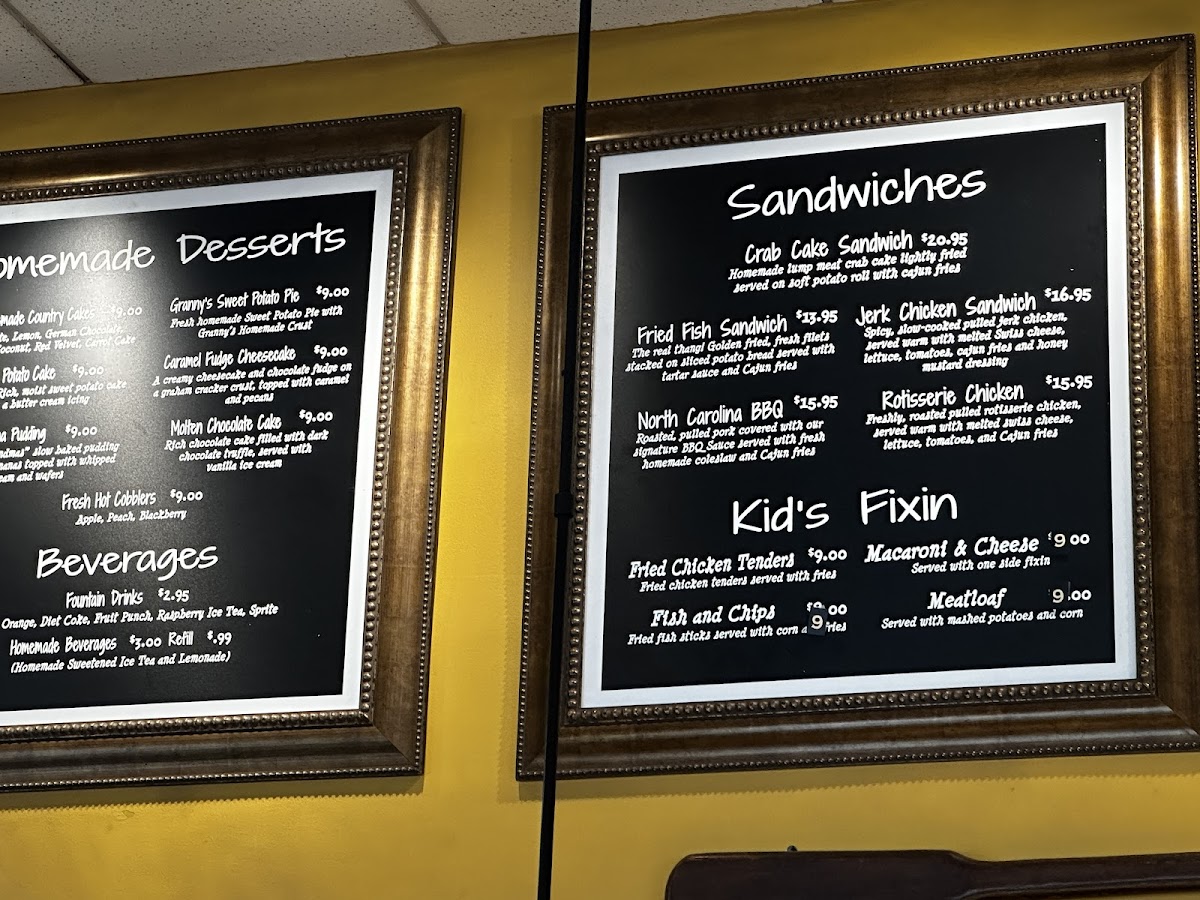 omemade Desserts
made Country Cakes $9.00
te, Lemon, German Chocolate,
oconut, Red Velvet, Carrot Cake
Potato Cake $9.00
Rich, moist sweet potato cake
a butter cream icing
a Pudding $9.00
ndmas" slow baked pudding
nanas topped with whipped
eam and wafers
Granny's Sweet Potato Pie $9.00
Fresh homemade Sweet Potato Pie with
Granny's Homemade Crust
Caramel Fudge Cheesecake $9.00
A creamy cheesecake and chocolate fudge on
a graham cracker crust, topped with caramel
and pecans
Molten Chocolate Cake $9.00
Rich chocolate cake filled with dark
chocolate truffle, served with
vanilla ice cream
Fresh Hot Cobblers $9.00
Apple, Peach, Blackberry
Beverages
Fountain Drinks $2.95
Orange, Diet Coke, Fruit Punch, Raspberry Ice Tea, Sprite
Homemade Beverages $3.00 Refill $.99
(Homemade Sweetened Ice Tea and Lemonade)
Sandwiches
Crab Cake Sandwich $20.95
Homemade lump meat crab cake lightly fried
served on soft potato roll with cajun fries
Fried Fish Sandwich $13.95
The real thang! Golden fried, fresh filets
stacked on sliced potato bread served with
tartar sauce and Cajun fries
Jerk Chicken Sandwich $16.95
Spicy, slow-cooked pulled jerk chicken,
served warm with melted Swiss cheese,
lettuce, tomatoes, cajun fries and honey
mustard dressing
North Carolina BBQ $15.95
Roasted, pulled pork covered with our
signature BBQ Sauce served with fresh
homemade coleslaw and Cajun fries
Rotisserie Chicken $15.95
Freshly, roasted pulled rotisserie chicken,
served warm with melted swiss cheese,
lettuce, tomatoes, and Cajun fries
Kid's Fixin
Fried Chicken Tenders $9.00
Fried chicken tenders served with fries
Macaroni & Cheese $9.00
Served with one side fixin
Fish and Chips $9.00
Fried fish sticks served with corn a fries
Meatloaf 9.00
Served with mashed potatoes and corn